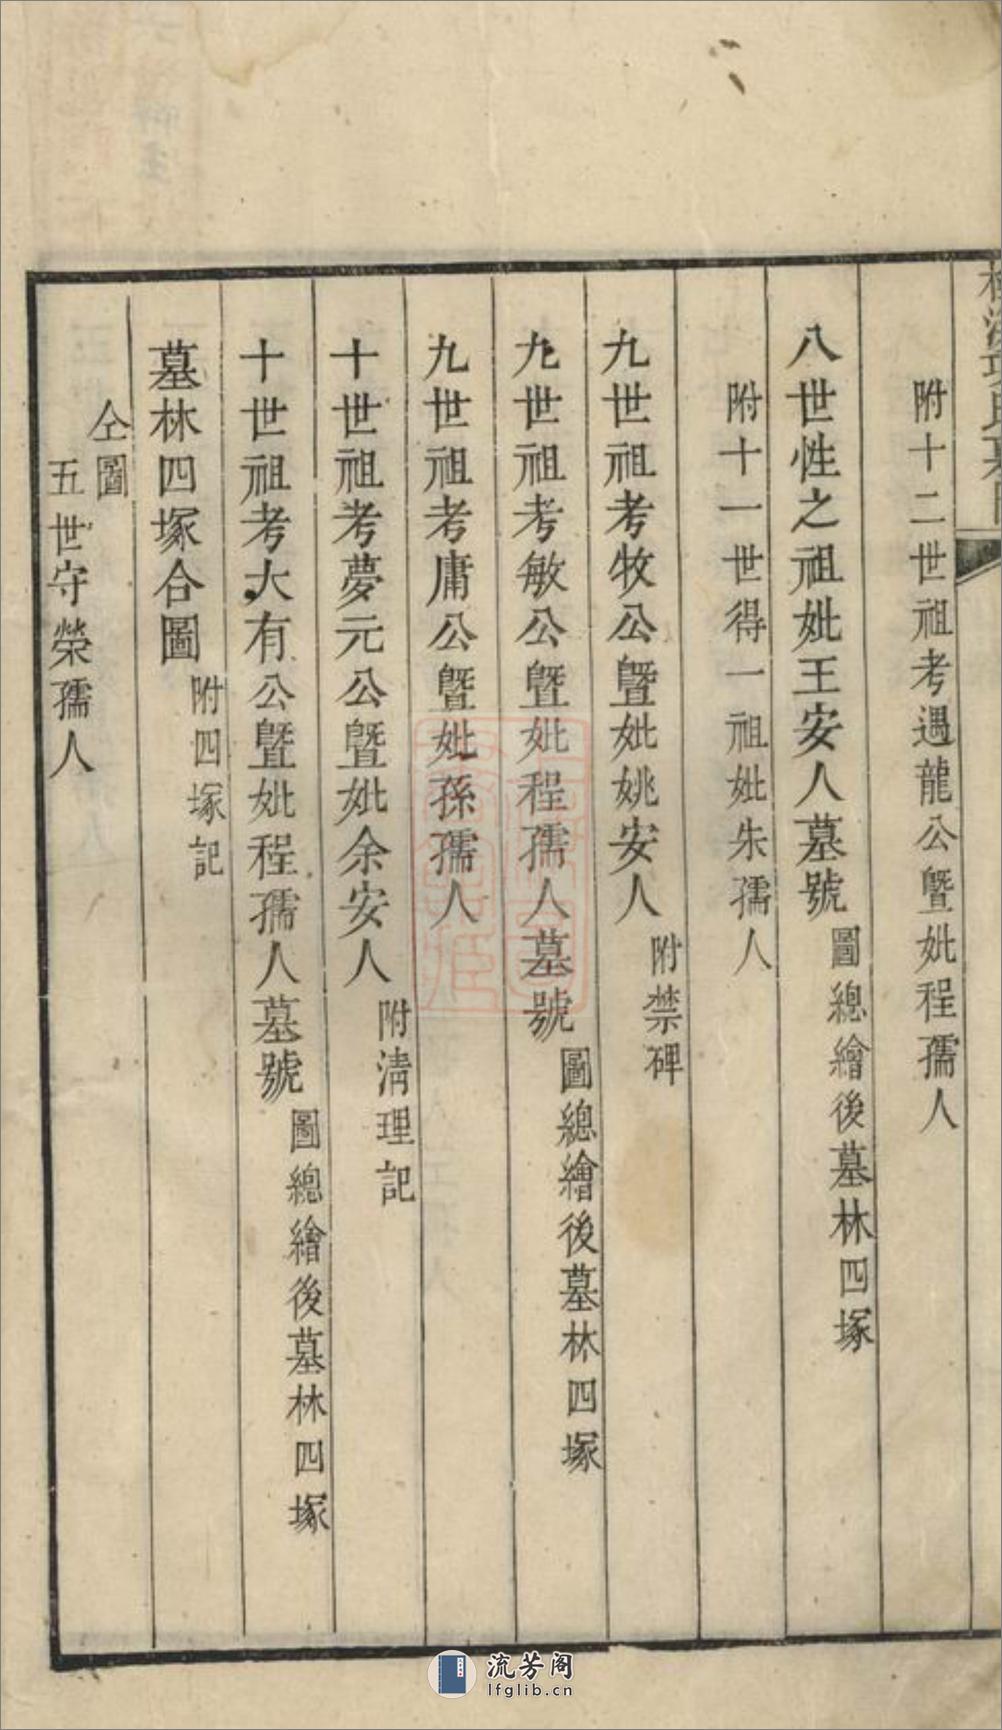 附十二世祖考遇龍公曁妣程孺人
八世性之祖妣王安人墓號 圖總繪後墓林四塚
附十一世得一祖妣朱孺人
九世祖考牧公曁妣姚安人 附禁碑
九世祖考敏公曁妣程孺人墓號 圖總繪後墓林四塚
九世祖考庸公曁妣孫孺人
十世祖考夢元公曁妣余安人 附清理記
十世祖考大有公曁妣程孺人墓號 圖總繪後墓林四塚
墓林四塚合圖 附四塚記
仝圖
五世守榮孺人
流芳阁
lfglib.cn